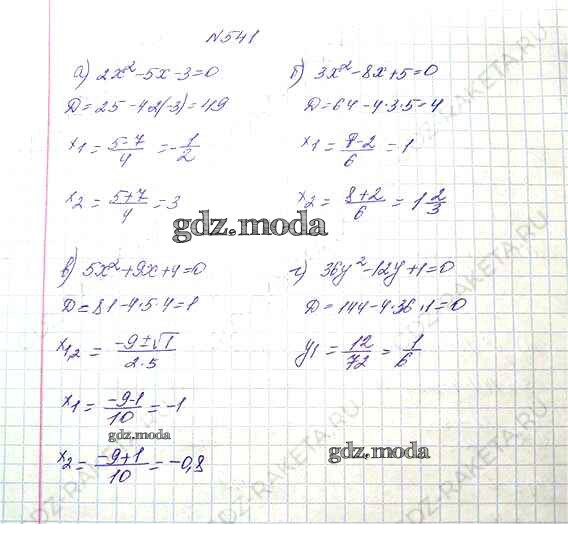 №541
а) 2x²-5x-3=0
D=25-42(-3)=49
x₁=(5-7)/4=-1/2
x₂=(5+7)/4=3
б) 3x²-8x+5=0
D=64-4·3·5=4
x₁=(8-2)/6=1
x₂=(8+2)/6=1 2/3
gdz.moda
в) 5x²+9x+4=0
D=81-4·5·4=1
x₁,₂=(-9±√1)/(2·5)
x₁=(-9-1)/10=-1
gdz.moda
x₂=(-9+1)/10=-0,8
г) 36y²-12y+1=0
D=144-4·36·1=0
y₁=12/72=1/6
gdz.moda
GDZ-RAKETA.RU
GDZ-RAKETA.RU
GDZ-RAKETA.RU
GDZ-RAKETA.RU